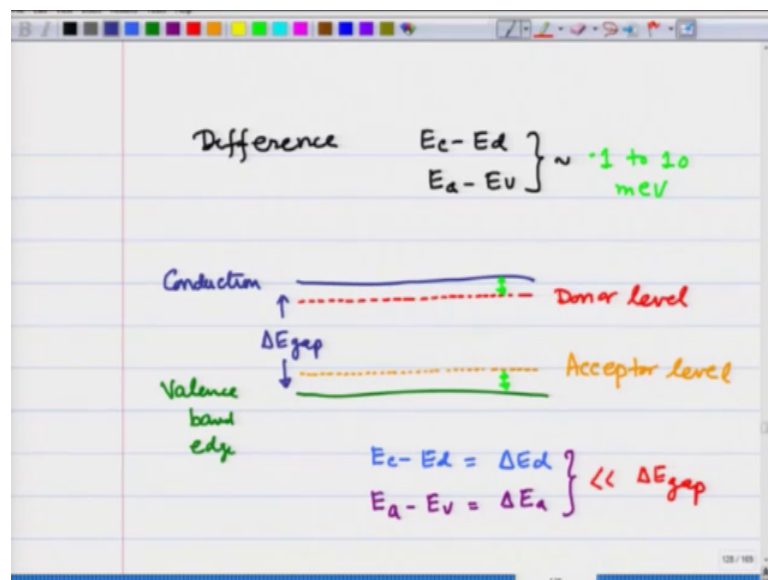 B I
Difference
Ec - Ed
Ea - Ev
} ~ ·1 to 10
meV
Conduction
Donor level
ΔEgap
Acceptor level
Valence
band
edge
Ec - Ed = ΔEd
Ea - Ev = ΔEa
} << ΔEgap
128 / 169